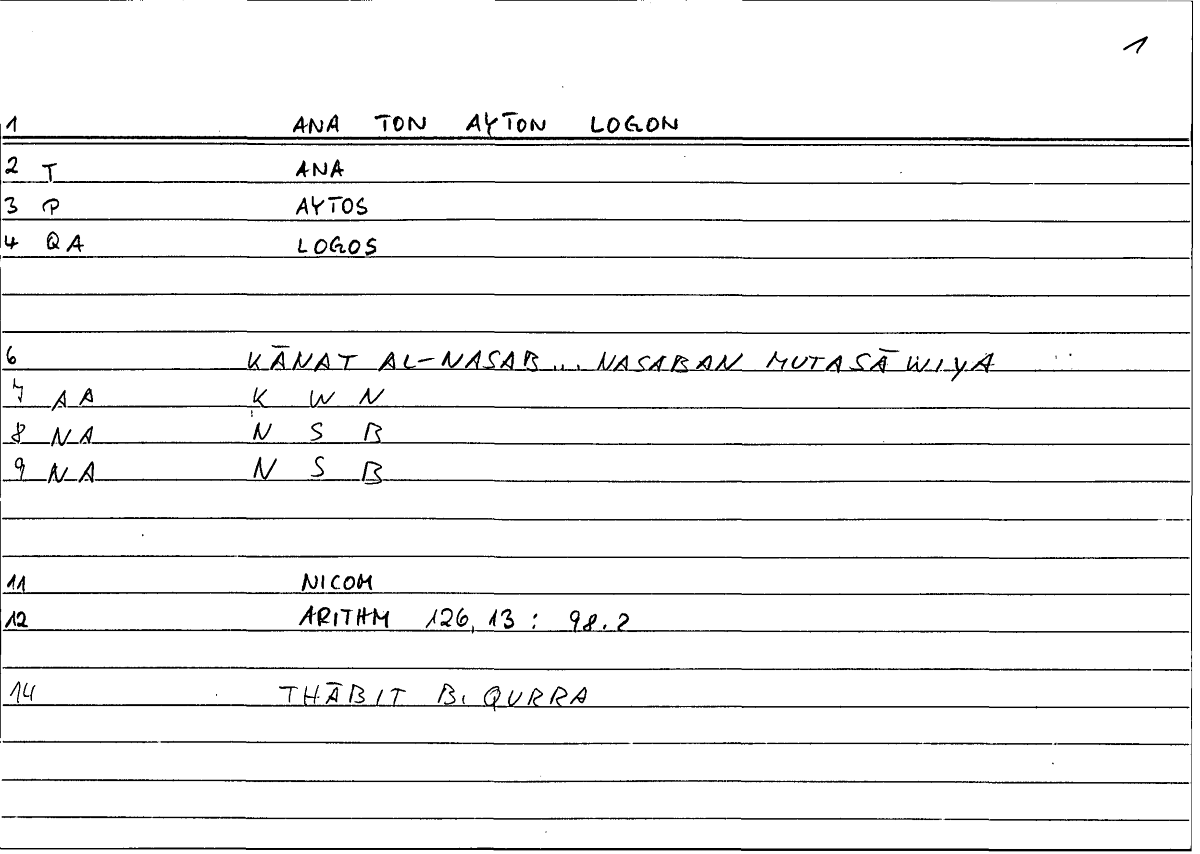 1
1 ANA TON AYTON LOGON
2 T ANA
3 P AYTOS
4 QA LOGOS
6 KĀNAT AL-NASAB... NASABAN MUTASĀWIYA
7 AA K W N
8 NA N S B
9 NA N S B
11 NICOM
12 ARITHM 126,13 : 98.2
14 THĀBIT B. QURRA